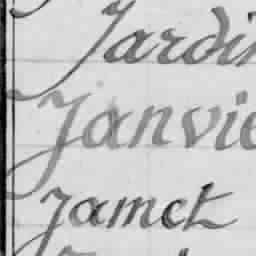 Jardin
Janvie
Jamet